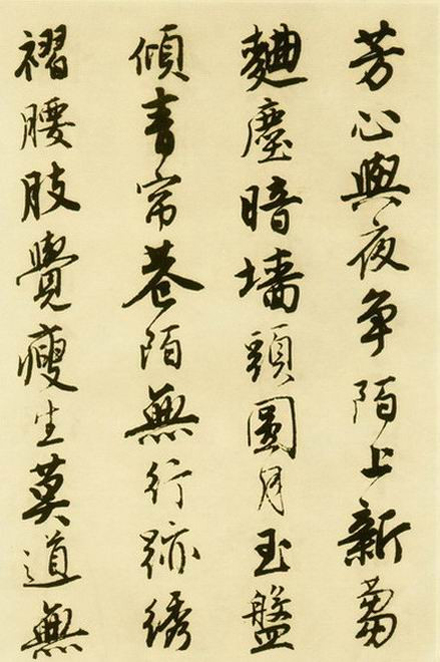 芳心與夜争陌上新蒭
麯塵暗墙頭圆月玉盤
傾青帘巷陌無行跡綉
褶腰肢覺瘦生莫道無